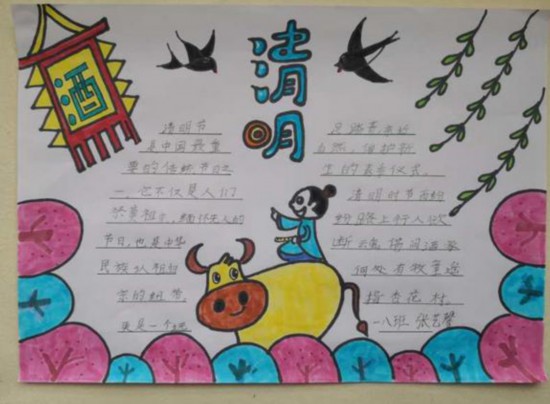 清明
酒
清明节
是中国最重
要的传统节日之
一,它不仅是人们
祭奠祖先,缅怀先人的
节日,也是中华
民族认祖归
宗的纽带,
更是一个
踏青
自然、
生的春季仪式。
清明时节雨纷
纷,路上行人欲
断云魂,借问酒家
何处有牧童遥
指杏花村。
一八班 张艺馨